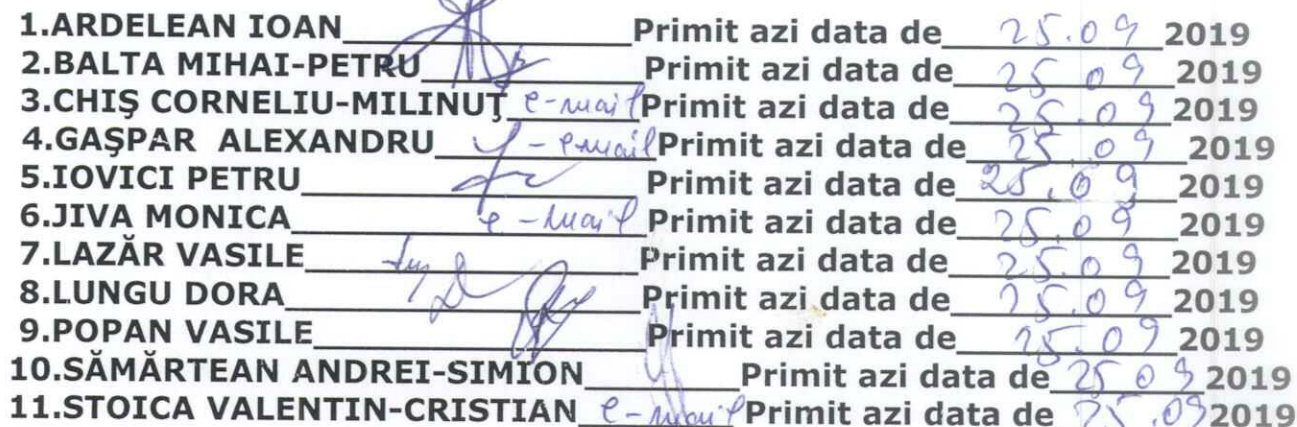 1.ARDELEAN IOAN Primit azi data de 25.09 2019
2.BALTA MIHAI-PETRU Primit azi data de 25 09 2019
3.CHIŞ CORNELIU-MILINUŢ e-mail Primit azi data de 25.09 2019
4.GAŞPAR ALEXANDRU - email Primit azi data de 25.09 2019
5.IOVICI PETRU Primit azi data de 25.09 2019
6.JIVA MONICA e-mail Primit azi data de 25.09 2019
7.LAZĂR VASILE Primit azi data de 25.09 2019
8.LUNGU DORA Primit azi data de 25.09 2019
9.POPAN VASILE Primit azi data de 25.09 2019
10.SĂMĂRTEAN ANDREI-SIMION Primit azi data de 25 09 2019
11.STOICA VALENTIN-CRISTIAN e-mail Primit azi data de 25.09 2019